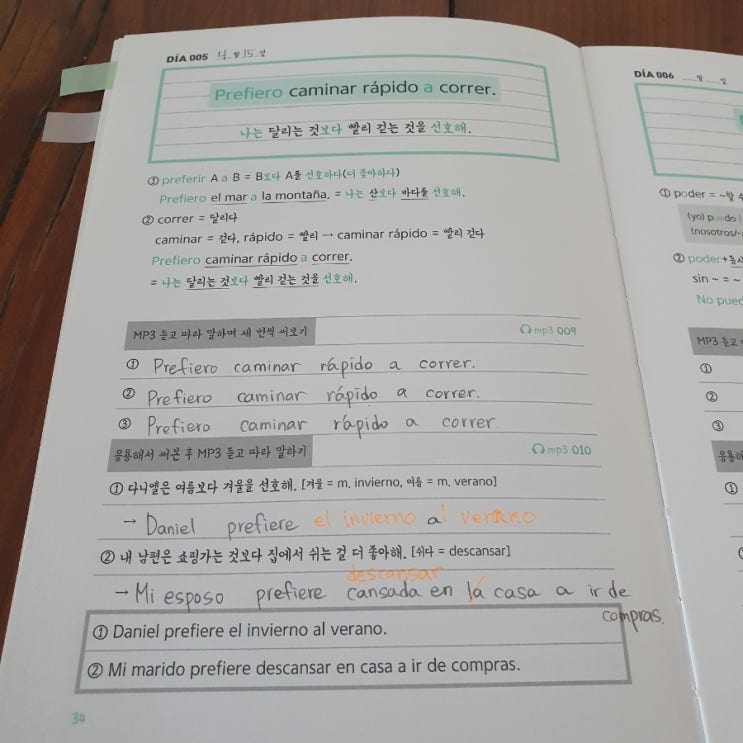 DÍA 005 4월 15일
Prefiero caminar rápido a correr.
나는 달리는 것보다 빨리 걷는 것을 선호해.
① preferir A a B = B보다 A를 선호하다(더 좋아하다)
Prefiero el mar a la montaña. = 나는 산보다 바다를 선호해.
② correr = 달리다
caminar = 걷다, rápido = 빨리 → caminar rápido = 빨리 걷다
Prefiero caminar rápido a correr.
= 나는 달리는 것보다 빨리 걷는 것을 선호해.
MP3 듣고 따라 말하며 세 번씩 써보기 mp3 009
① Prefiero caminar rápido a correr.
② Prefiero caminar rápido a correr.
③ Prefiero caminar rápido a correr
응용해서 써본 후 MP3 듣고 따라 말하기 mp3 010
① 다니엘은 여름보다 겨울을 선호해. [겨울 = m. invierno, 여름 = m. verano]
→ Daniel prefiere el invierno al verano
② 내 남편은 쇼핑가는 것보다 집에서 쉬는 걸 더 좋아해. [쉬다 = descansar]
descansar
→ Mi esposo prefiere cansada en la casa a ir de
compras.
① Daniel prefiere el invierno al verano.
② Mi marido prefiere descansar en casa a ir de compras.
34
DÍA 006 월 일
① poder = ~할
(yo) puedo
(nosotros/
② poder+동사
sin ~ = ~
No pued
MP3 듣고
①
②
③
응용해
①